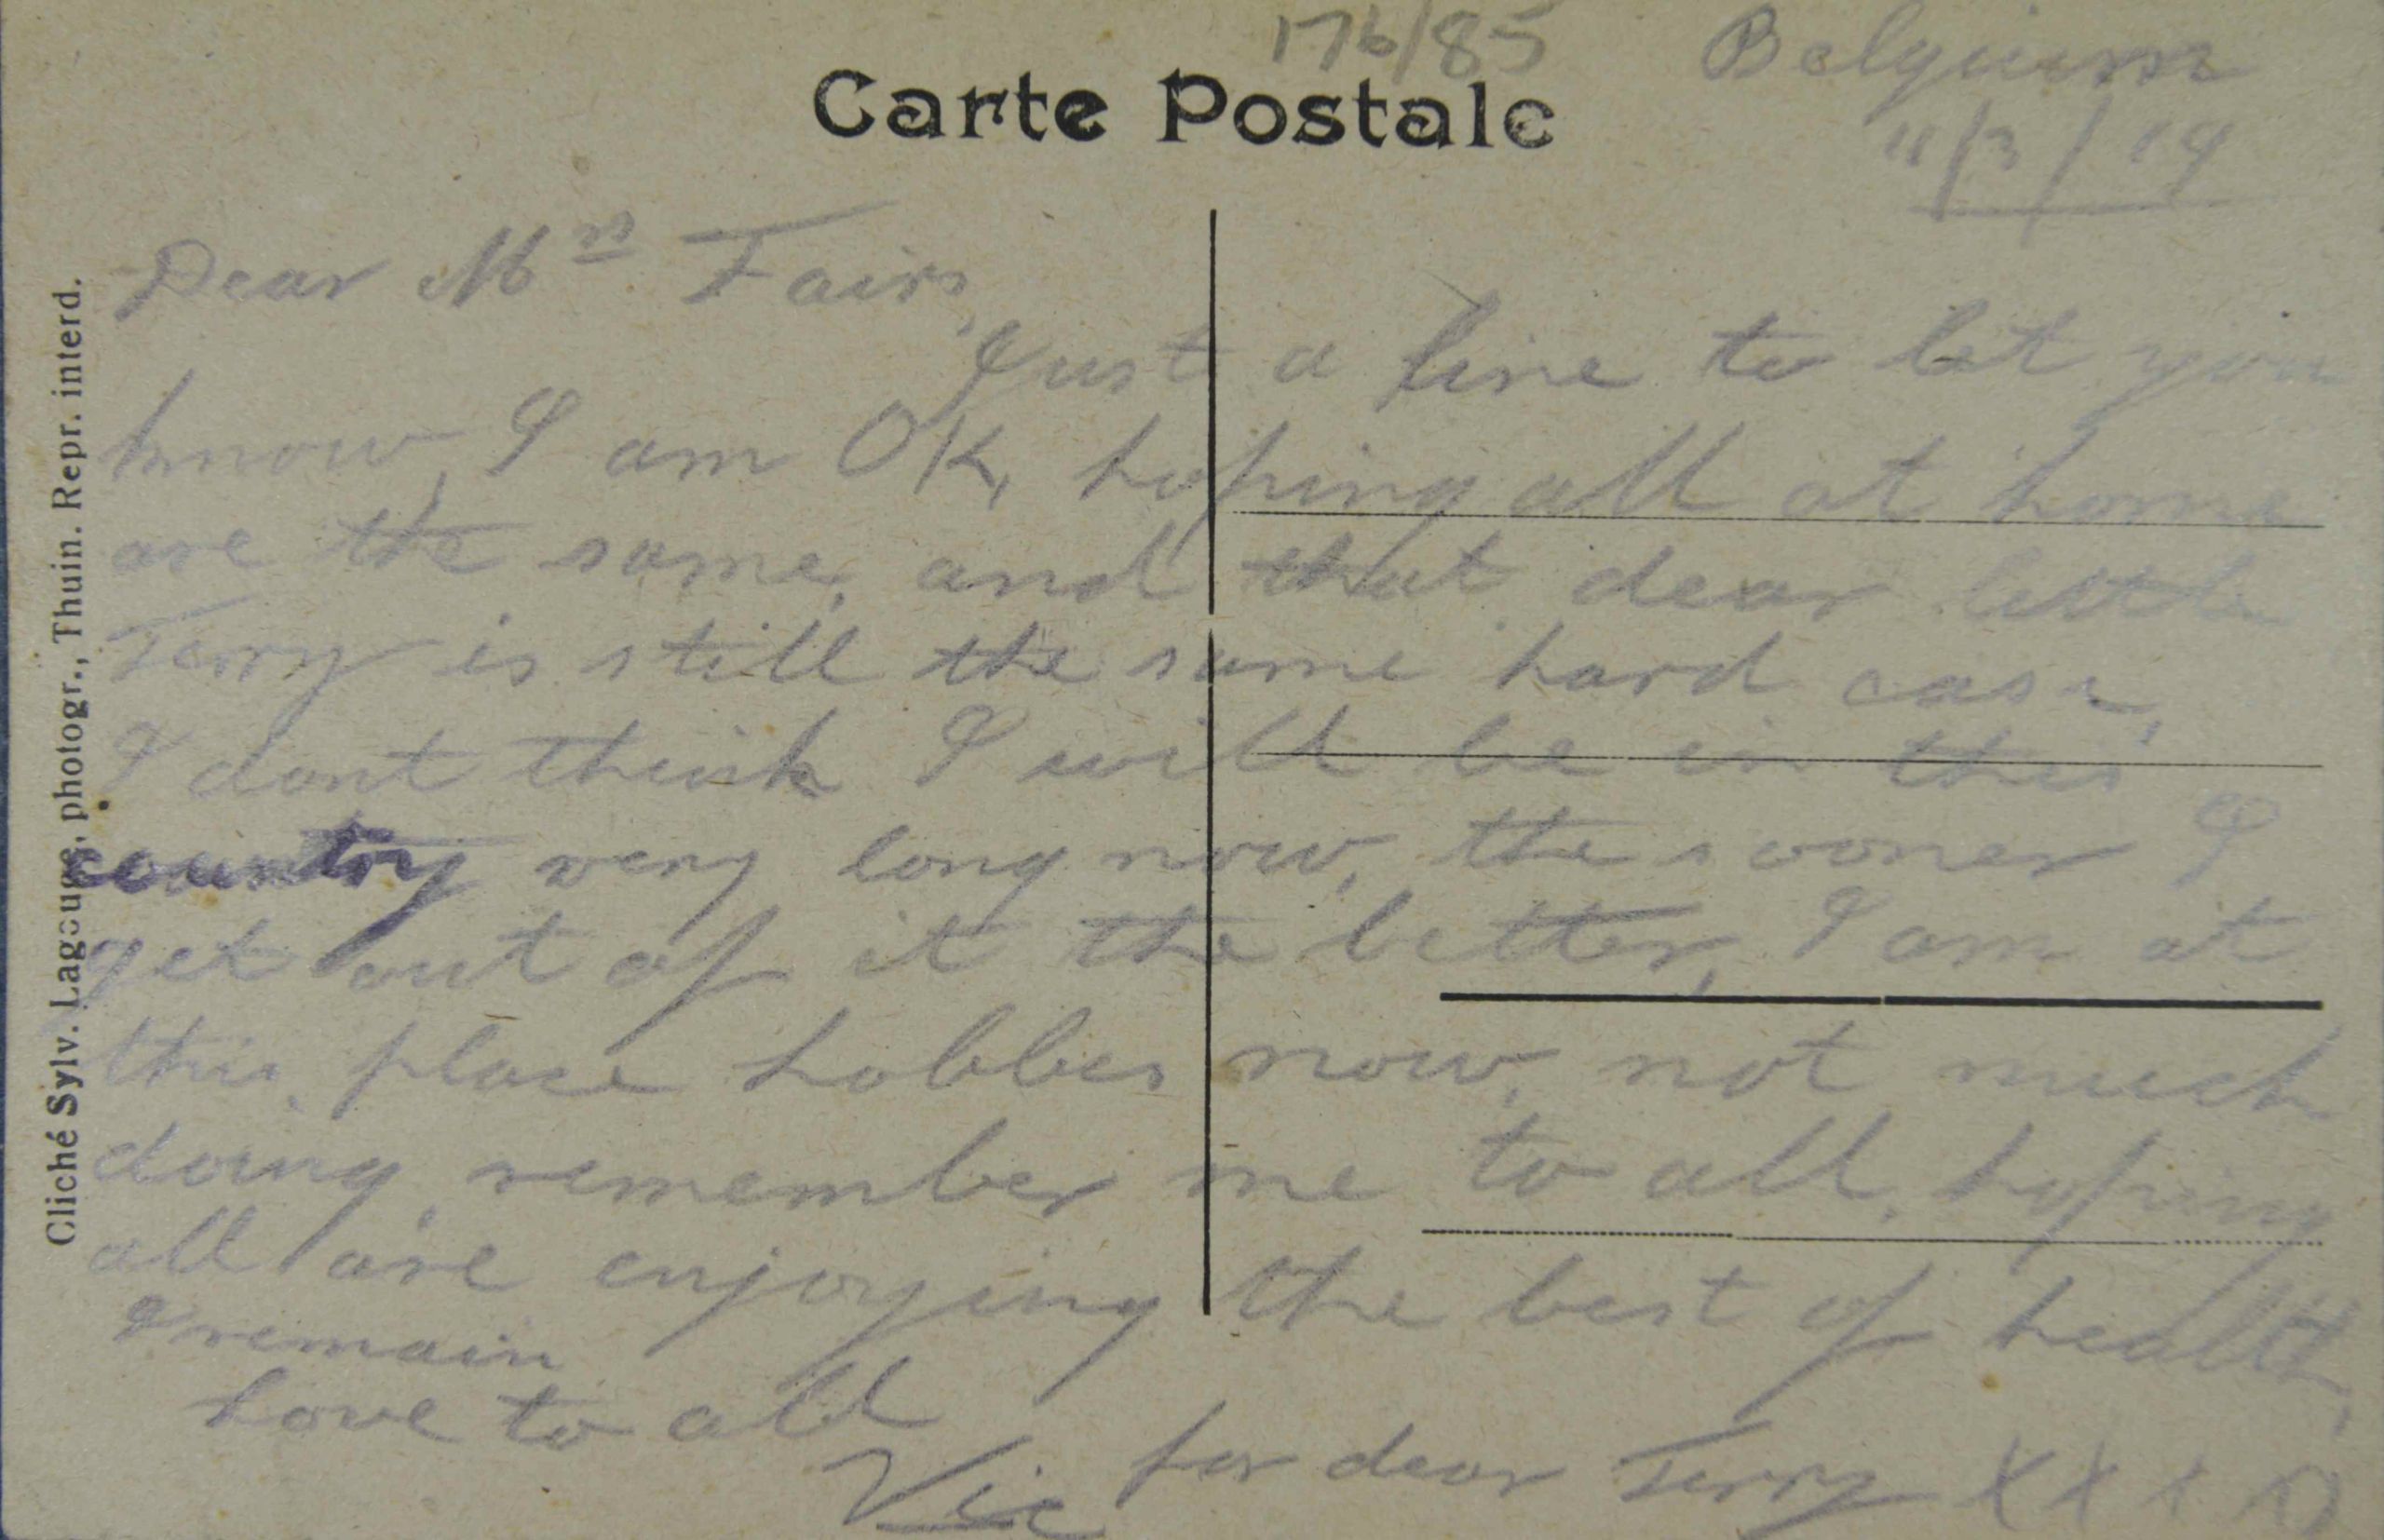 176/85
Belgium
Carte Postale
11/3/19
Dear Mrs Fairs,
Just a line to let you
know, I am OK, hoping all at home
are the same, and that dear little
Terry is still the same hard case,
I dont think I will be in this
country very long now, the sooner I
get out of it the better, I am at
this place Lobbes now, not much
doing, remember me to all, hoping
all are enjoying the best of health,
I remain
Love to all
Vic
for dear Terry X X X X
Cliché Sylv. photogr., Thuin. Repr. interd.